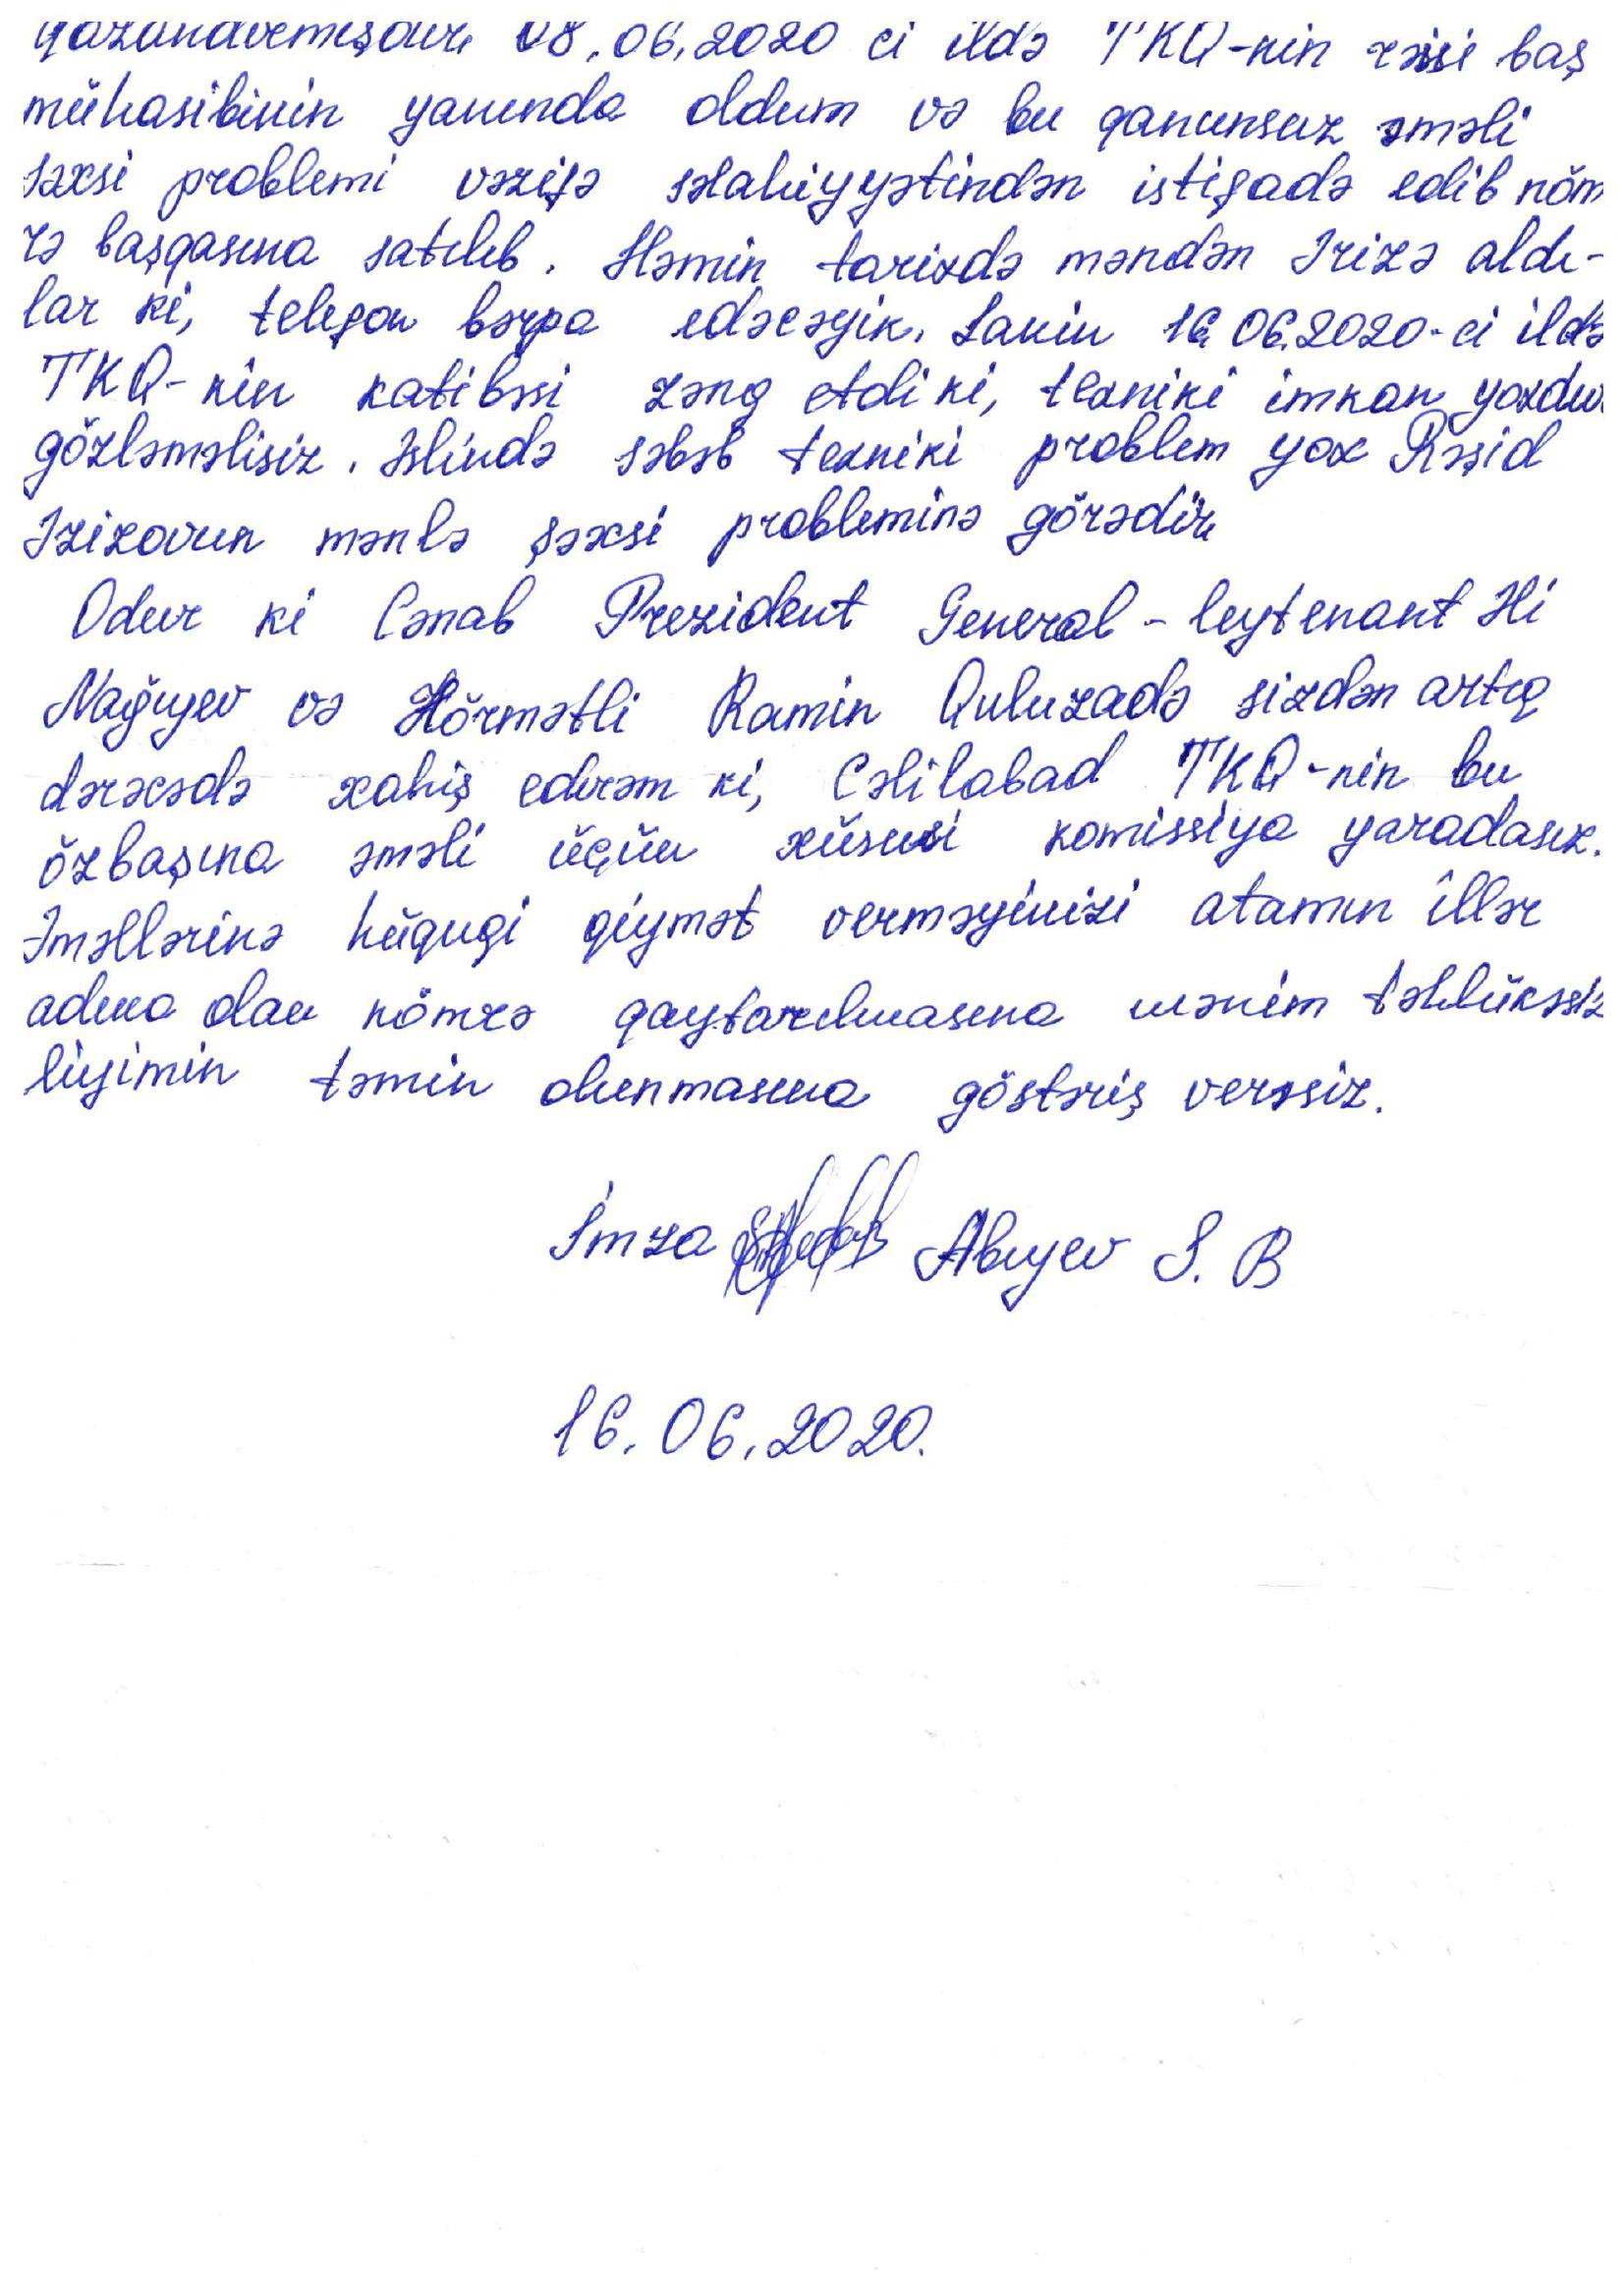 qazandırmışdır. 08.06.2020 ci ildə TKQ-nin rəisi baş
mühasibinin yanında oldum və bu qanunsuz əməli
şəxsi problemi vəzifə səlahiyyətindən istifadə edib nöm
rə başqasına satılıb. Həmin tarixdə məndən Ərizə aldı-
lar ki, telefon bərpa edəcəyik. Lakin 16.06.2020-ci ildə
TKQ-nin katibəsi zəng etdi ki, texniki imkan yoxdur
gözləməlisiz. Əslində səbəb texniki problem yox Rəşid
Əzizovun mənlə şəxsi probleminə görədir.
Odur ki Cənab Prezident General-leytenant Əli
Nağıyev və Hörmətli Ramin Quluzadə sizdən artıq
dərəcədə xahiş edirəm ki, Cəlilabad TKQ-nin bu
özbaşına əməli üçün xüsusi komissiya yaradasız.
Əməllərinə hüquqi qiymət verməyinizi atamın illər
adına olan nömrə qaytarılmasına mənim təhlükəsiz
liyimin təmin olunmasına göstəriş verəsiz.
İmza Abıyev S. B
16.06.2020.